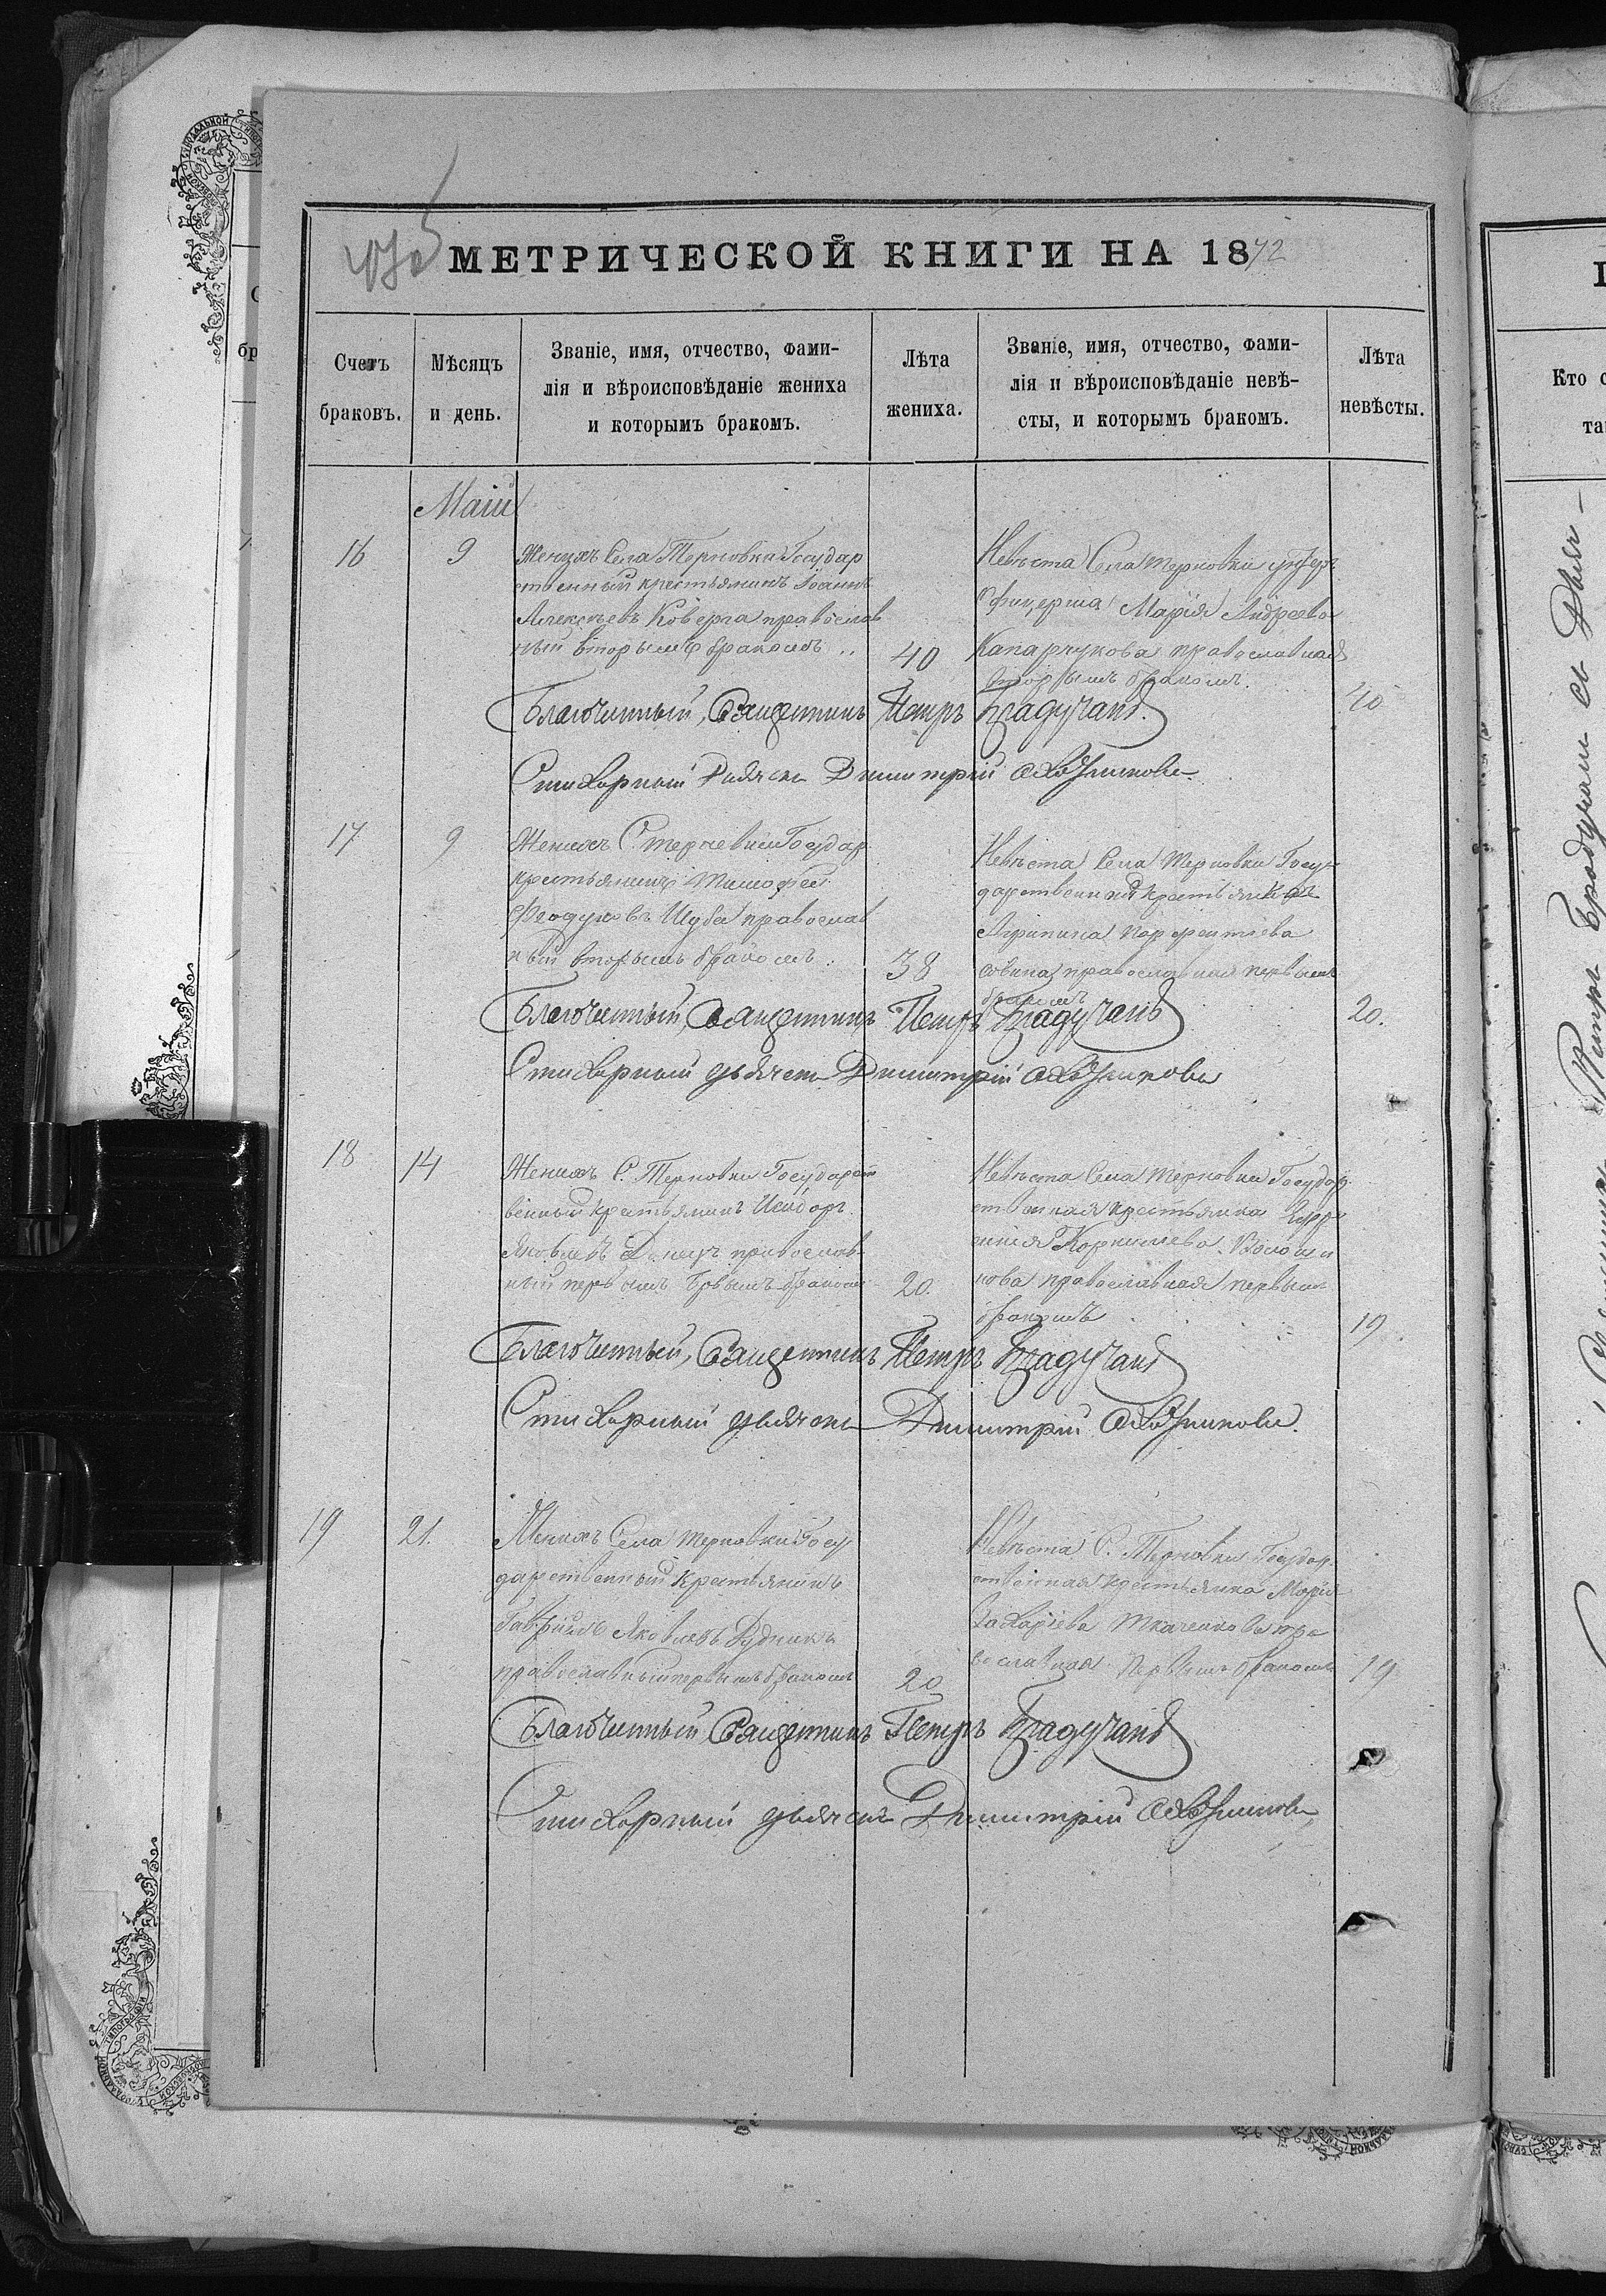 МЕТРИЧЕСКОЙ КНИГИ НА 1872
Счетъ браковъ.
Мѣсяцъ и день.
Званіе, имя, отчество, фами-
лія и вѣроисповѣданіе жениха
и которымъ бракомъ.
Лѣта жениха.
Званіе, имя, отчество, фами-
лія и вѣроисповѣданіе невѣ-
сты, и которымъ бракомъ.
Лѣта невѣсты.
Маій
16
9
Женихъ Села Терновки Государ
ственный крестьянинъ Іоаннъ
Алексѣевъ Коверга православ
ный вторымъ бракомъ
40
Невѣста Села Терновки унтеръ
офицерша Марія Андреева
Капарчукова православная
вторымъ бракомъ.
40
Благочинный, Священникъ Петръ
Стихарный Дьячекъ Димитрій
17
9
Женихъ С. Терновки Государ
крестьянинъ Тимофей
Шуба православ
ный вторымъ бракомъ.
38
Невѣста Села Терновки Госу-
дарственная крестьянка
Агрипина
православная первымъ
бракомъ
20.
Благочинный, Священникъ Петръ
Стихарный дьячекъ Димитрій
18
14
Женихъ С. Терновки Государст
венный крестьянинъ Исидоръ
Яковлевъ Донецъ православ-
ный первымъ бракомъ
20.
Невѣста Села Терновки Государ-
ственная крестьянка
Корнилиева Волоши
нова православная первымъ
бракомъ
19
Благочинный, Священникъ Петръ
Стихарный дьячекъ Димитрій
19
21.
Женихъ Села Терновки Госу
дарственный Крестьянинъ
Гавріилъ Яковлевъ Рудникъ
православный первымъ бракомъ
20
Невѣста С. Терновки Государ-
ственная крестьянка Марія
Захаріева Ткаченкова пра
вославная первымъ бракомъ
19
Благочинный, Священникъ Петръ
Стихарный дьячекъ Димитрій
Кто с